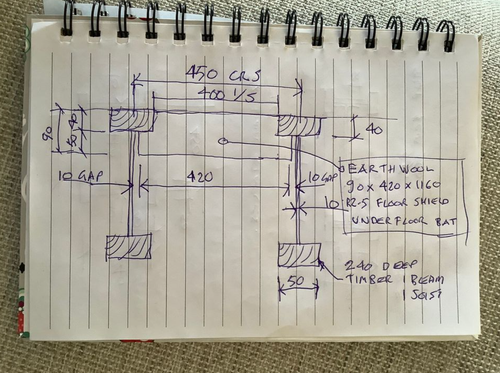 450 CRS
400 I/S
90
40
50
40
10 GAP
420
10 GAP
10
EARTHWOOL
90 x 420 x 1160
R2.5 FLOOR SHIELD
UNDERFLOOR BAT
240 DEEP
TIMBER I BEAM
JOIST
50